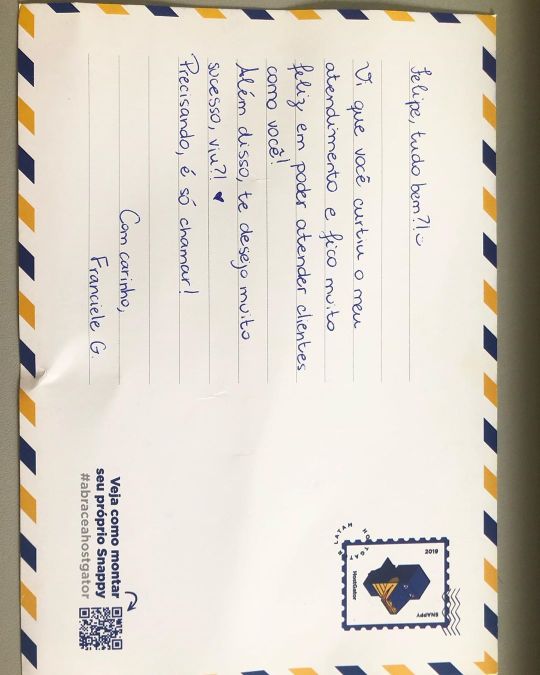 Felipe, tudo bem?! :)
Vi que você curtiu o meu
atendimento e fico muito
feliz em poder atender clientes
como você!
Além disso, te desejo muito
sucesso, viu?! ♥
Precisando, é só chamar!
Com carinho,
Franciele G.
2019
HostGator
SNAPPY
Veja como montar
seu próprio Snappy
#abraceahostgator